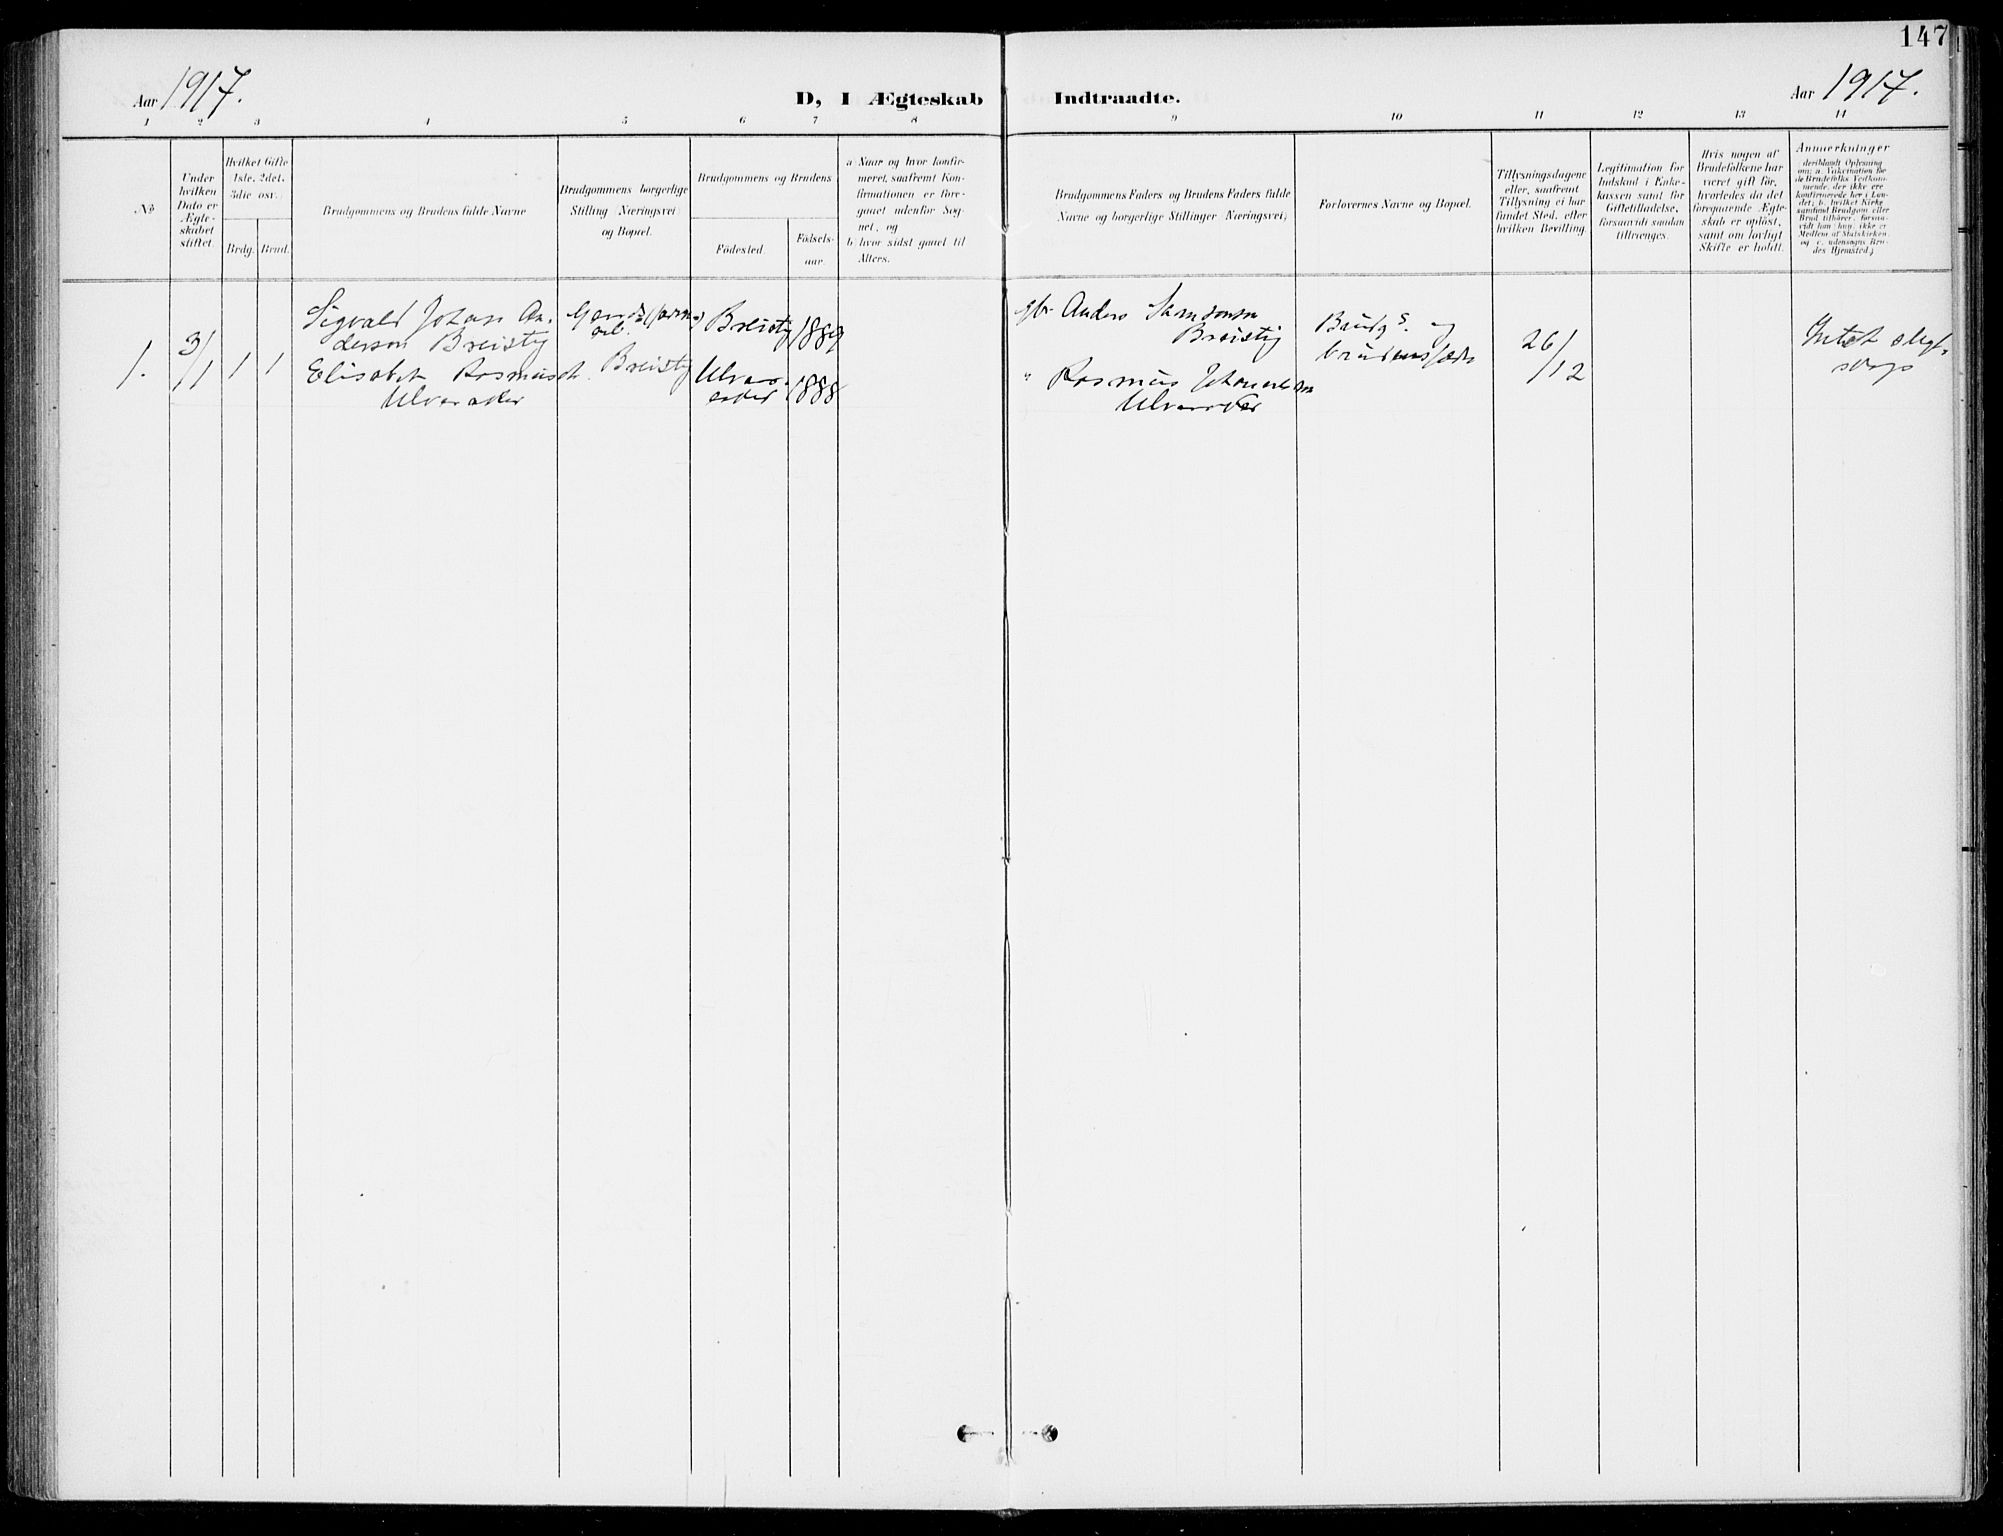 147
Aar 1917.
D, I Ægteskab Indtraadte.
Aar 1917.
1 2 3 4 5 6 7 8 9 10 11 12 13 14
No
Under
hvilken
Dato er
Ægte-
skabet
stiftet.
Hvilket Gifte
1ste, 2det,
3die osv.
Brdg. Brud.
Brudgommens og Brudens fulde Navne
Brudgommens borgerlige
Stilling Næringsvei
og Bopæl.
Brudgommens og Brudens
Födested.
Födsels-
aar.
a Naar og hvor konfir-
meret, saafremt Kon-
firmationen er fore-
gaaet udenfor Sog-
net, og
b hvor sidst gaaet til
Alters.
Brudgommens Faders og Brudens Faders fulde
Navne og borgerlige Stillinger Næringsvei,
Forlovernes Navne og Bopæl.
Tillysningsdagene
eller, saafremt
Tillysning ei har
fundet Sted, efter
hvilken Bevilling.
Legitimation for
Indskud i Enke-
kassen samt for
Giftetilladelse,
forsaavidt saadan
tiltrænges.
Hvis nogen af
Brudefolkene har
været gift før,
hvorledes da det
foregaaende Ægte-
skab er oplöst,
samt om lovligt
Skifte er holdt.
Anmærkninger
deriblandt Oplysning
om: a. Vakcination for
de Brudefolks Vedkom-
mende, der ikke ere
konfirmerede her i Lan-
det; b. hvilket Kirke-
samfund Brudgom eller
Brud tilhörer, forsaa-
vidt han/hun ikke er
Medlem af Statskirken,
og c. udensogns Bru-
des Hjemsted.
1. 3/1 1 1
Sigvald Johan An-
derson Breistig
Elisabet Rasmusdt.
Ulvanaker
Breistig
Breistig 1889
1888
gbr. Anders Samsonsen
Breistig
" Rasmus Johannessen
Brudg s. og
brudens fader
26/12
Intet slegt-
skap